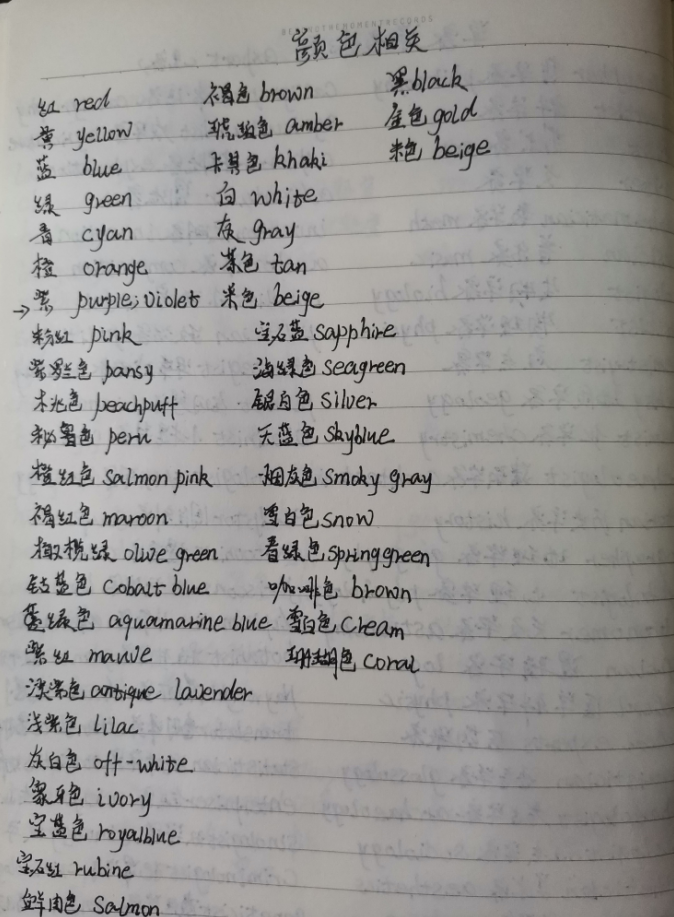 BE WITH THE MOMENT RECORDS
颜色相关
红 red 褐色 brown 黑 black
黄 yellow 琥珀色 amber 金色 gold
蓝 blue 卡其色 khaki 米色 beige
绿 green 白 white
青 cyan 灰 gray
橙 orange 茶色 tan
→ 紫 purple; violet 米色 beige
粉红 pink 宝石蓝 sapphire
紫罗兰色 pansy 海绿色 seagreen
桃色 peachpuff 银白色 silver
秘鲁色 peru 天蓝色 skyblue
橙红色 salmon pink 烟灰色 smoky gray
褐红色 maroon 雪白色 snow
橄榄绿 olive green 春绿色 springgreen
钴蓝色 cobalt blue 咖啡色 brown
蓝绿色 aquamarine blue 雪白色 cream
紫红 mauve 珊瑚色 coral
淡紫色 antique lavender
浅紫色 lilac
灰白色 off-white
象牙色 ivory
宝蓝色 royalblue
宝石红 rubine
鲜肉色 salmon